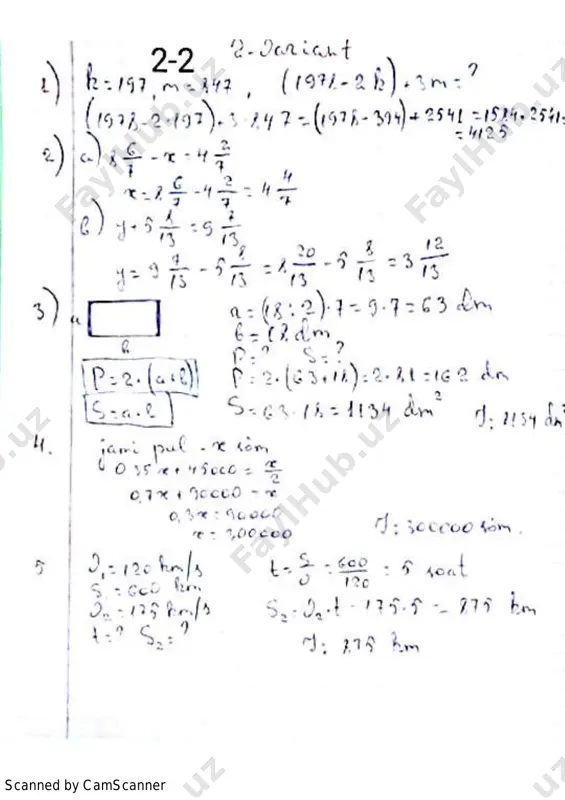 2-2
2-Variant
1) k=197, m=847, (1978-2k)+3m=?
(1978-2·197)+3·847=(1978-394)+2541=1584+2541=
=4125
2) a) 8 6/7 - x = 4 2/7
x = 8 6/7 - 4 2/7 = 4 4/7
b) y+5 8/13 = 9 7/13
y = 9 7/13 - 5 8/13 = 8 20/13 - 5 8/13 = 3 12/13
3) a
b
a=(18:2)·7=9·7=63 dm
b=18 dm
P=? S=?
P=2·(a+b)
P=2·(63+18)=2·81=162 dm
S=a·b
S=63·18=1134 dm²
J: 1134 dm²
4. jami pul - x so'm
0,35x+45000=x/2
0,7x+90000=x
0,3x=90000
x=300000
J: 300000 so'm.
5 J₁=120 km/s
S₁=600 km
J₂=175 km/s
t=? S₂=?
t=S/J=600/120=5 soat
S₂=J₂·t=175·5=875 km
J: 875 km
FaylHub.uz
FaylHub.uz
FaylHub.uz
FaylHub.uz
Scanned by CamScanner